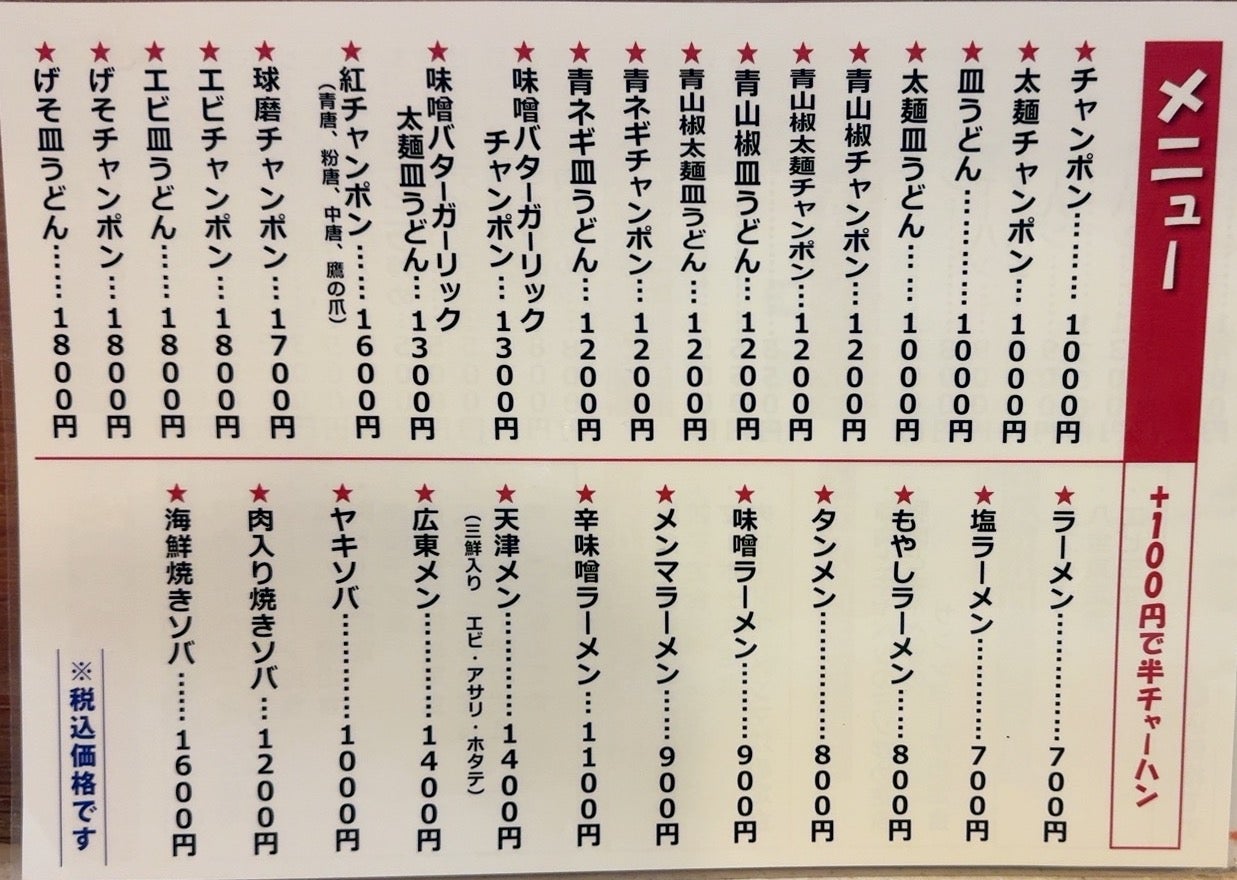 メニュー
★チャンポン………1000円
★太麺チャンポン…1000円
★皿うどん…………1000円
★太麺皿うどん……1000円
★青山椒チャンポン…1200円
★青山椒太麺チャンポン…1200円
★青山椒皿うどん…1200円
★青山椒太麺皿うどん…1200円
★青ネギチャンポン…1200円
★青ネギ皿うどん…1200円
★味噌バターガーリック
チャンポン…1300円
★味噌バターガーリック
太麺皿うどん…1300円
★紅チャンポン……1600円
(青唐、粉唐、中唐、鷹の爪)
★球磨チャンポン…1700円
★エビチャンポン…1800円
★エビ皿うどん……1800円
★げそチャンポン…1800円
★げそ皿うどん……1800円
+100円で半チャーハン
★ラーメン…………700円
★塩ラーメン………700円
★もやしラーメン……800円
★タンメン…………800円
★味噌ラーメン………900円
★メンマラーメン……900円
★辛味噌ラーメン…1100円
★天津メン…………1400円
(三鮮入り エビ・アサリ・ホタテ)
★広東メン…………1400円
★ヤキソバ…………1000円
★肉入り焼きソバ…1200円
★海鮮焼きソバ……1600円
※税込価格です